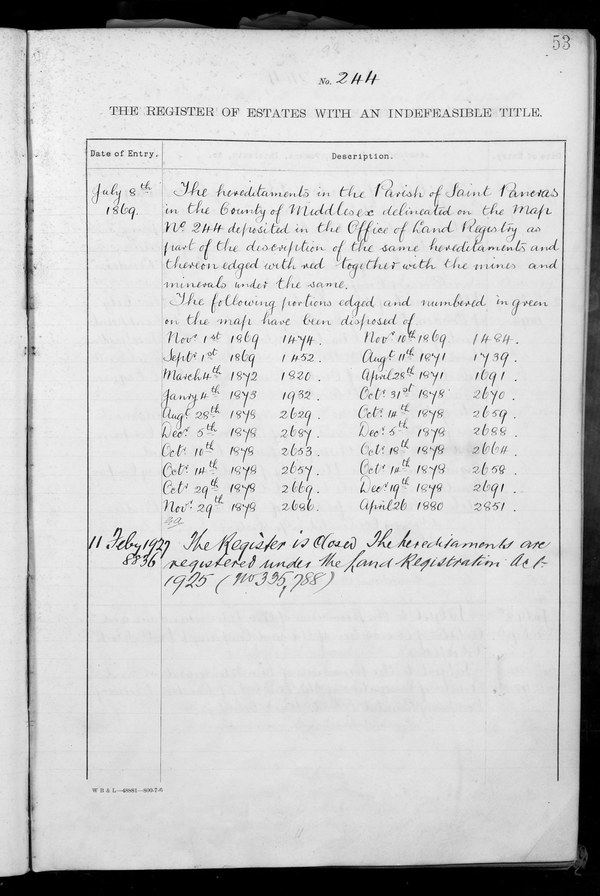 53
No. 244
THE REGISTER OF ESTATES WITH AN INDEFEASIBLE TITLE.
Date of Entry. Description.
July 8th The hereditaments in the Parish of Saint Pancras
1869. in the County of Middlesex delineated on the Map
No. 244 deposited in the Office of Land Registry as
part of the description of the same hereditaments and
thereon edged with red together with the mines and
minerals under the same.
The following portions edged and numbered in green
on the map have been disposed of
Novr. 1st 1869 1474. Novr. 10th 1869 1484.
Septr. 1st 1869 1452. Augt. 11th 1871 1739.
March 4th 1872 1820. April 28th 1871 1691.
Janry 4th 1873 1932. Octr. 31st 1878 2670.
Augt. 28th 1878 2629. Octr. 14th 1878 2659.
Decr. 5th 1878 2687. Decr. 5th 1878 2688.
Octr. 10th 1878 2653. Octr. 18th 1878 2664.
Octr. 14th 1878 2657. Octr. 14th 1878 2658.
Octr. 29th 1878 2669. Decr. 19th 1878 2691.
Novr. 29th 1878 2686. April 26 1880 2851.
11 Feby 1927 The Register is Closed The hereditaments are
8836 registered under the Land Registration Act
1925 (No 335,788)
W B & L—49881—800-7-6